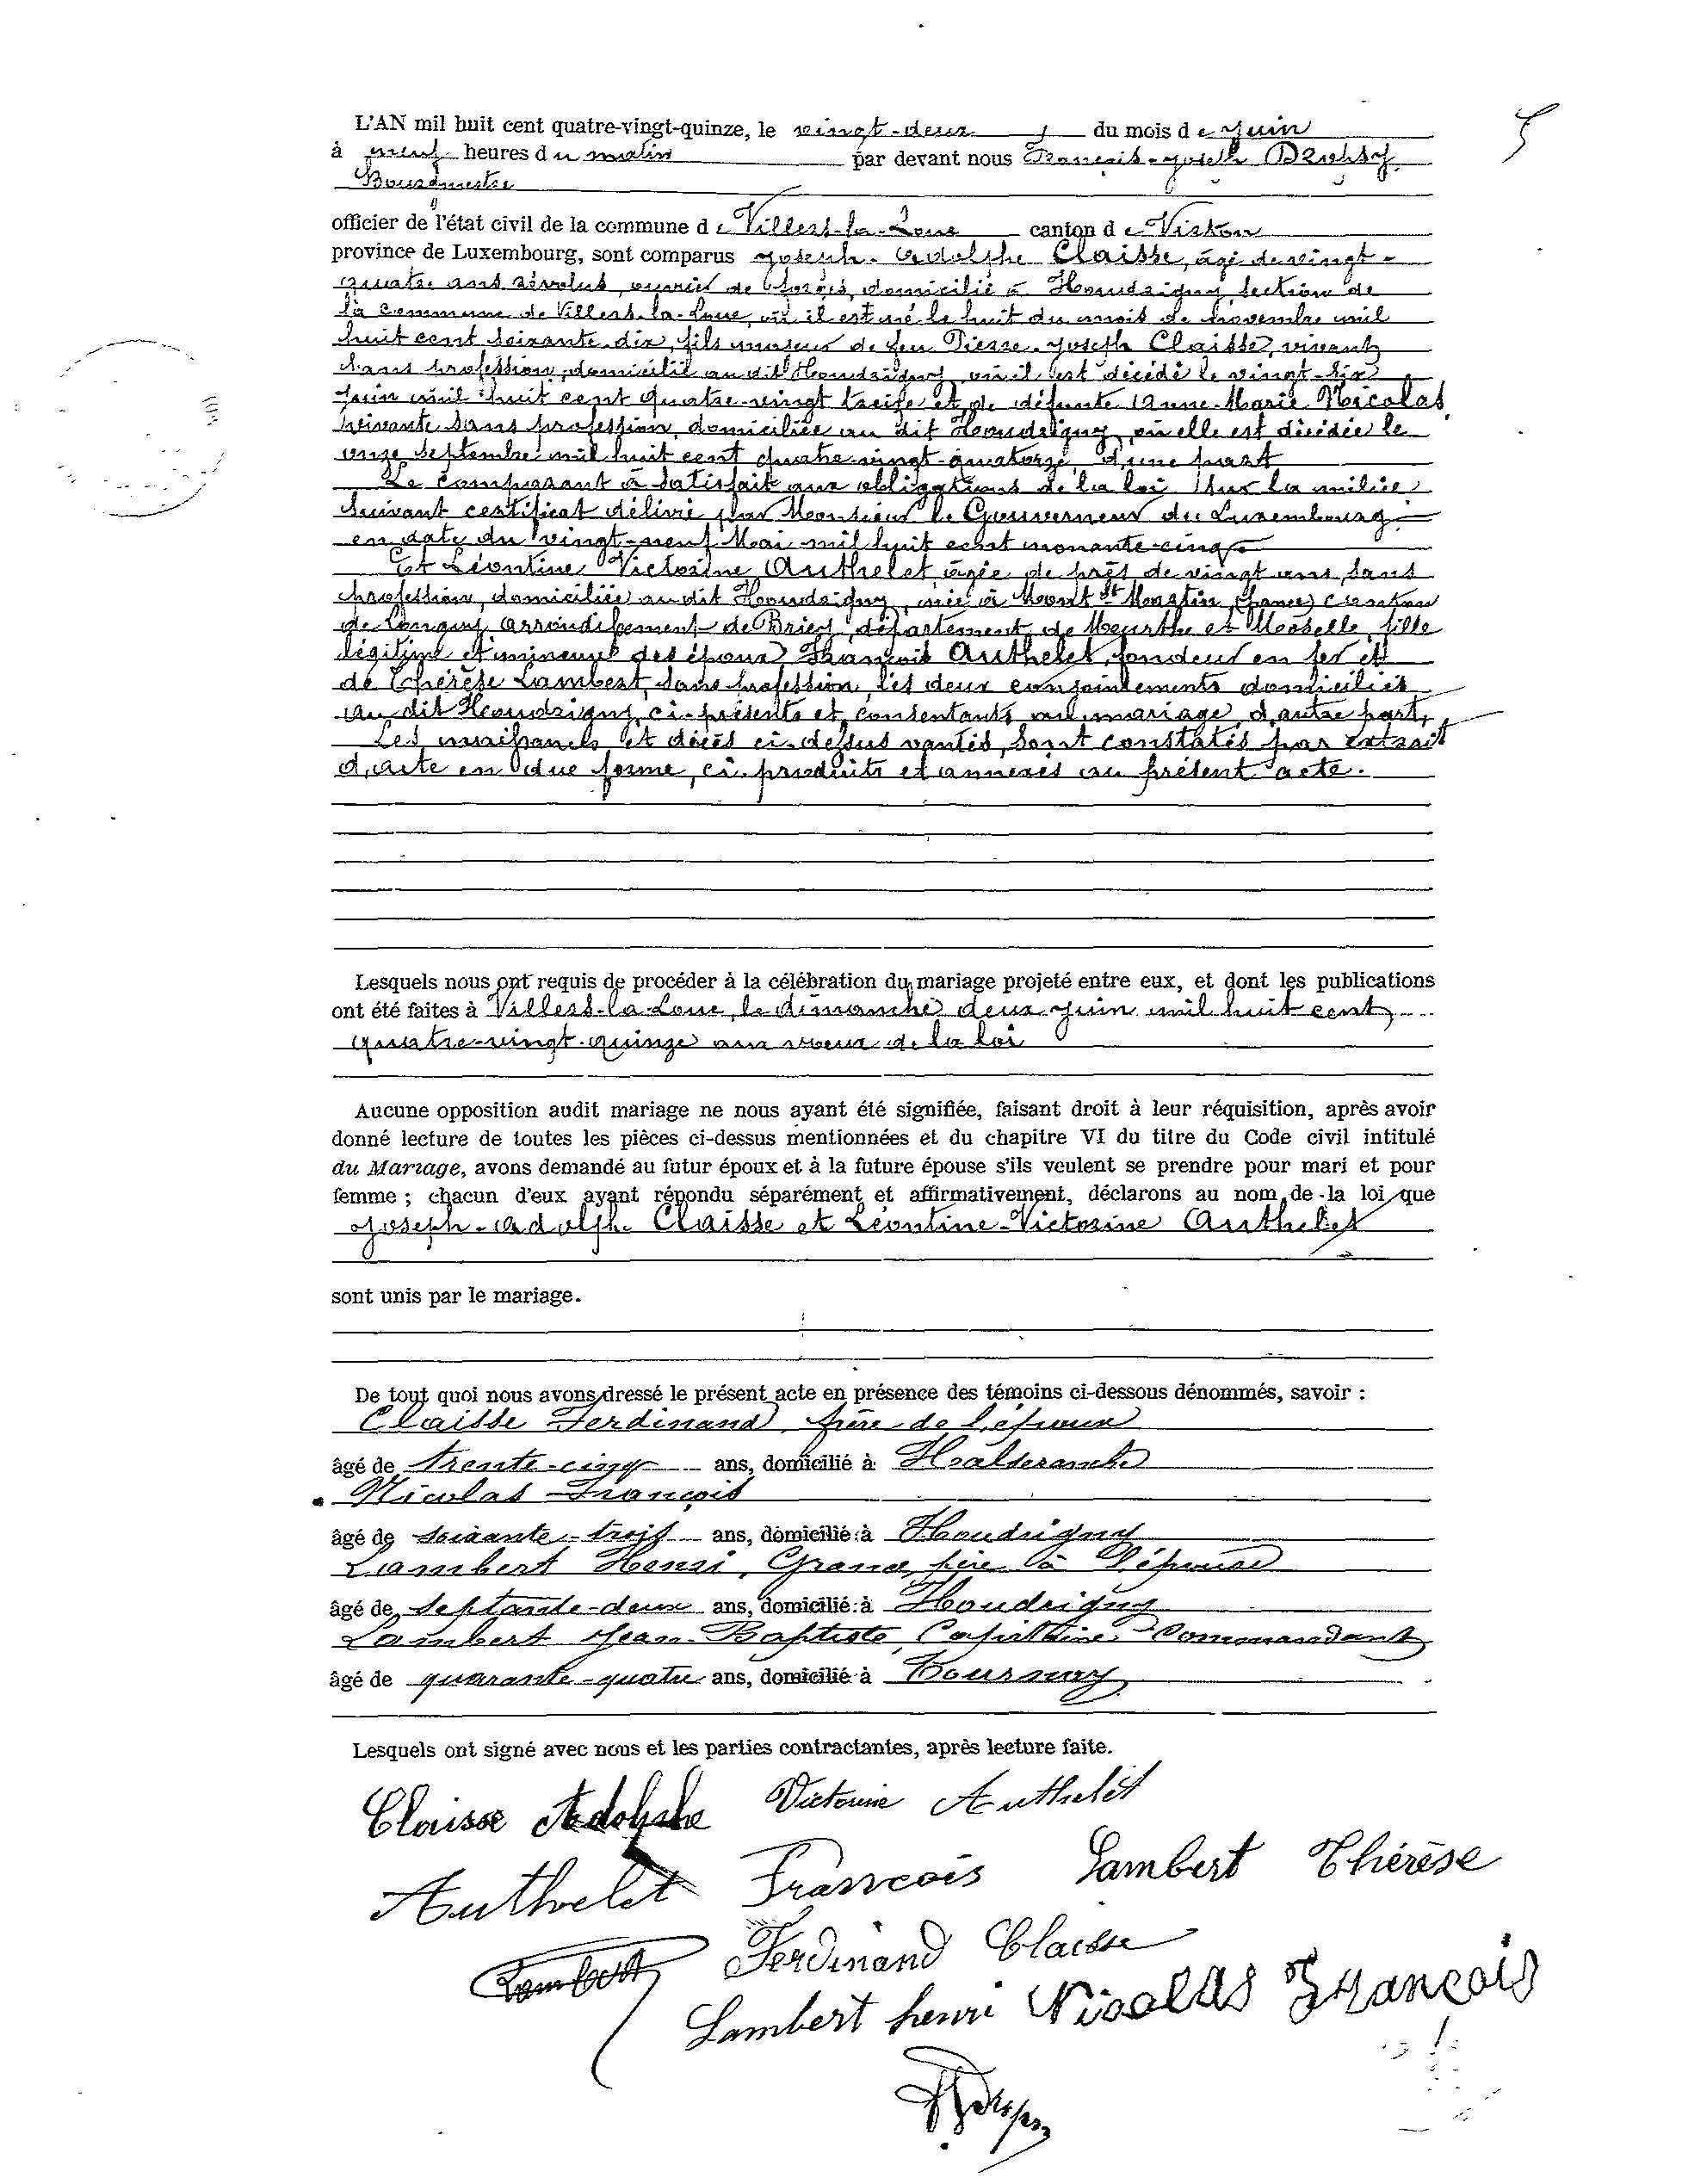 5
L'AN mil huit cent quatre-vingt-quinze, le vingt-deux du mois de Juin
à neuf heures du matin par devant nous François-Joseph
Bourgmestre
officier de l'état civil de la commune de Villers-la-Loue canton de Virton
province de Luxembourg, sont comparus Joseph-Adolphe Claisse, âgé de vingt-
quatre ans révolus, ouvrier de forges, domicilié à Houdrigny, section de
la commune de Villers-la-Loue, où il est né le huit du mois de novembre mil
huit cent soixante-dix, fils majeur de feu Pierre-Joseph Claisse, vivant
sans profession, domicilié au dit Houdrigny où il est décédé le vingt-six
juin mil huit cent quatre-vingt treize et de défunte Anne-Marie Nicolas
vivante sans profession, domiciliée au dit Houdrigny, où elle est décédée le
onze septembre mil huit cent quatre-vingt-quatorze, d'une part
Le comparant a satisfait aux obligations de la loi sur la milice
suivant certificat délivré par Monsieur le Gouverneur du Luxembourg
en date du vingt-neuf Mai mil huit cent nonante-cinq
Et Léontine Victorine Authelet, âgée de près de vingt ans, sans
profession, domiciliée au dit Houdrigny, née à Mont St Martin (France) canton
de Longwy arrondissement de Briey, département de Meurthe et Moselle, fille
légitime et mineure des époux François Authelet, fondeur en fer et
de Thérèse Lambert, sans profession, les deux conjointements domiciliés
au dit Houdrigny, ci-présents et consentants au mariage, d'autre part,
Les naissances et décès ci-dessus vantés, sont constatés par extrait
d'acte en due forme, ci-produits et annexés au présent acte.
Lesquels nous ont requis de procéder à la célébration du mariage projeté entre eux, et dont les publications
ont été faites à Villers-la-Loue, le dimanche deux juin mil huit cent
quatre-vingt-quinze aux voeux de la loi
Aucune opposition audit mariage ne nous ayant été signifiée, faisant droit à leur réquisition, après avoir
donné lecture de toutes les pièces ci-dessus mentionnées et du chapitre VI du titre du Code civil intitulé
du Mariage, avons demandé au futur époux et à la future épouse s'ils veulent se prendre pour mari et pour
femme ; chacun d'eux ayant répondu séparément et affirmativement, déclarons au nom de la loi que
Joseph-Adolphe Claisse et Léontine-Victorine Authelet
sont unis par le mariage.
De tout quoi nous avons dressé le présent acte en présence des témoins ci-dessous dénommés, savoir :
Claisse Ferdinand, frère de l'époux
âgé de trente-cinq ans, domicilié à Halanzy
Nicolas François
âgé de soixante-trois ans, domicilié à Houdrigny
Lambert Henri, Grand père à l'épouse
âgé de septante-deux ans, domicilié à Houdrigny
Lambert Jean-Baptiste, Capitaine-Commandant
âgé de quarante-quatre ans, domicilié à Tournay
Lesquels ont signé avec nous et les parties contractantes, après lecture faite.
Claisse Adolphe Victorine Authelet
Authelet François Lambert Thérèse
Lambert Ferdinand Claisse
Lambert henri Nicolas François